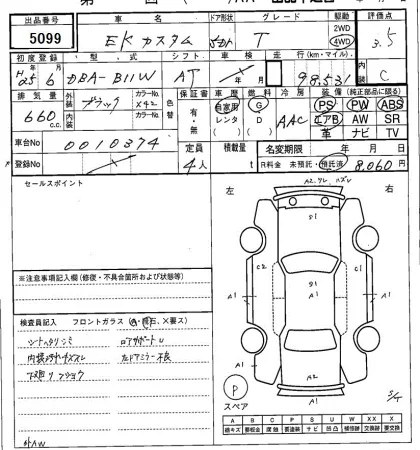 出品番号 車名 ドア形状 グレード 駆動 評価点
5099 EKカスタム 5D T 2WD 4WD 3.5
初度登録 型式 シフト 車検 走行(km・マイル) 内装
H25年6月 DBA-B11W AT 年 月 98,531 C
排気量 外装 ブラック カラーNo. X42 色替 保証書 車歴 燃料 冷房 装備(純正部品に限る)
660c.c. 内装 カラーNo. 有・無 自家用 レンタ G D AAC PS PW ABS
エアB AW SR
革 ナビ TV
車台No 0010374 定員 4人 積載量 t 名変期限 年 月 日
登録No R料金 未預託・預託済 8,060円
セールスポイント
左 右
A2,ワレ,ハズレ
S1
C2 C2
A1 A1
A1 A1
A2
※注意事項記入欄(修復・不具合箇所および状態等)
検査員記入 フロントガラス(A・飛石、X要ス)
シートヘタリ,シミ ロアサポートU
内装 キズ,スレ 左ドアミラー不良
下廻り フショク
外AW
P
スペア
A B C P S U W X XX X
線キズ 要板金 腐蝕 要塗装 サビ 凹凸 補修跡 交換跡 要交換